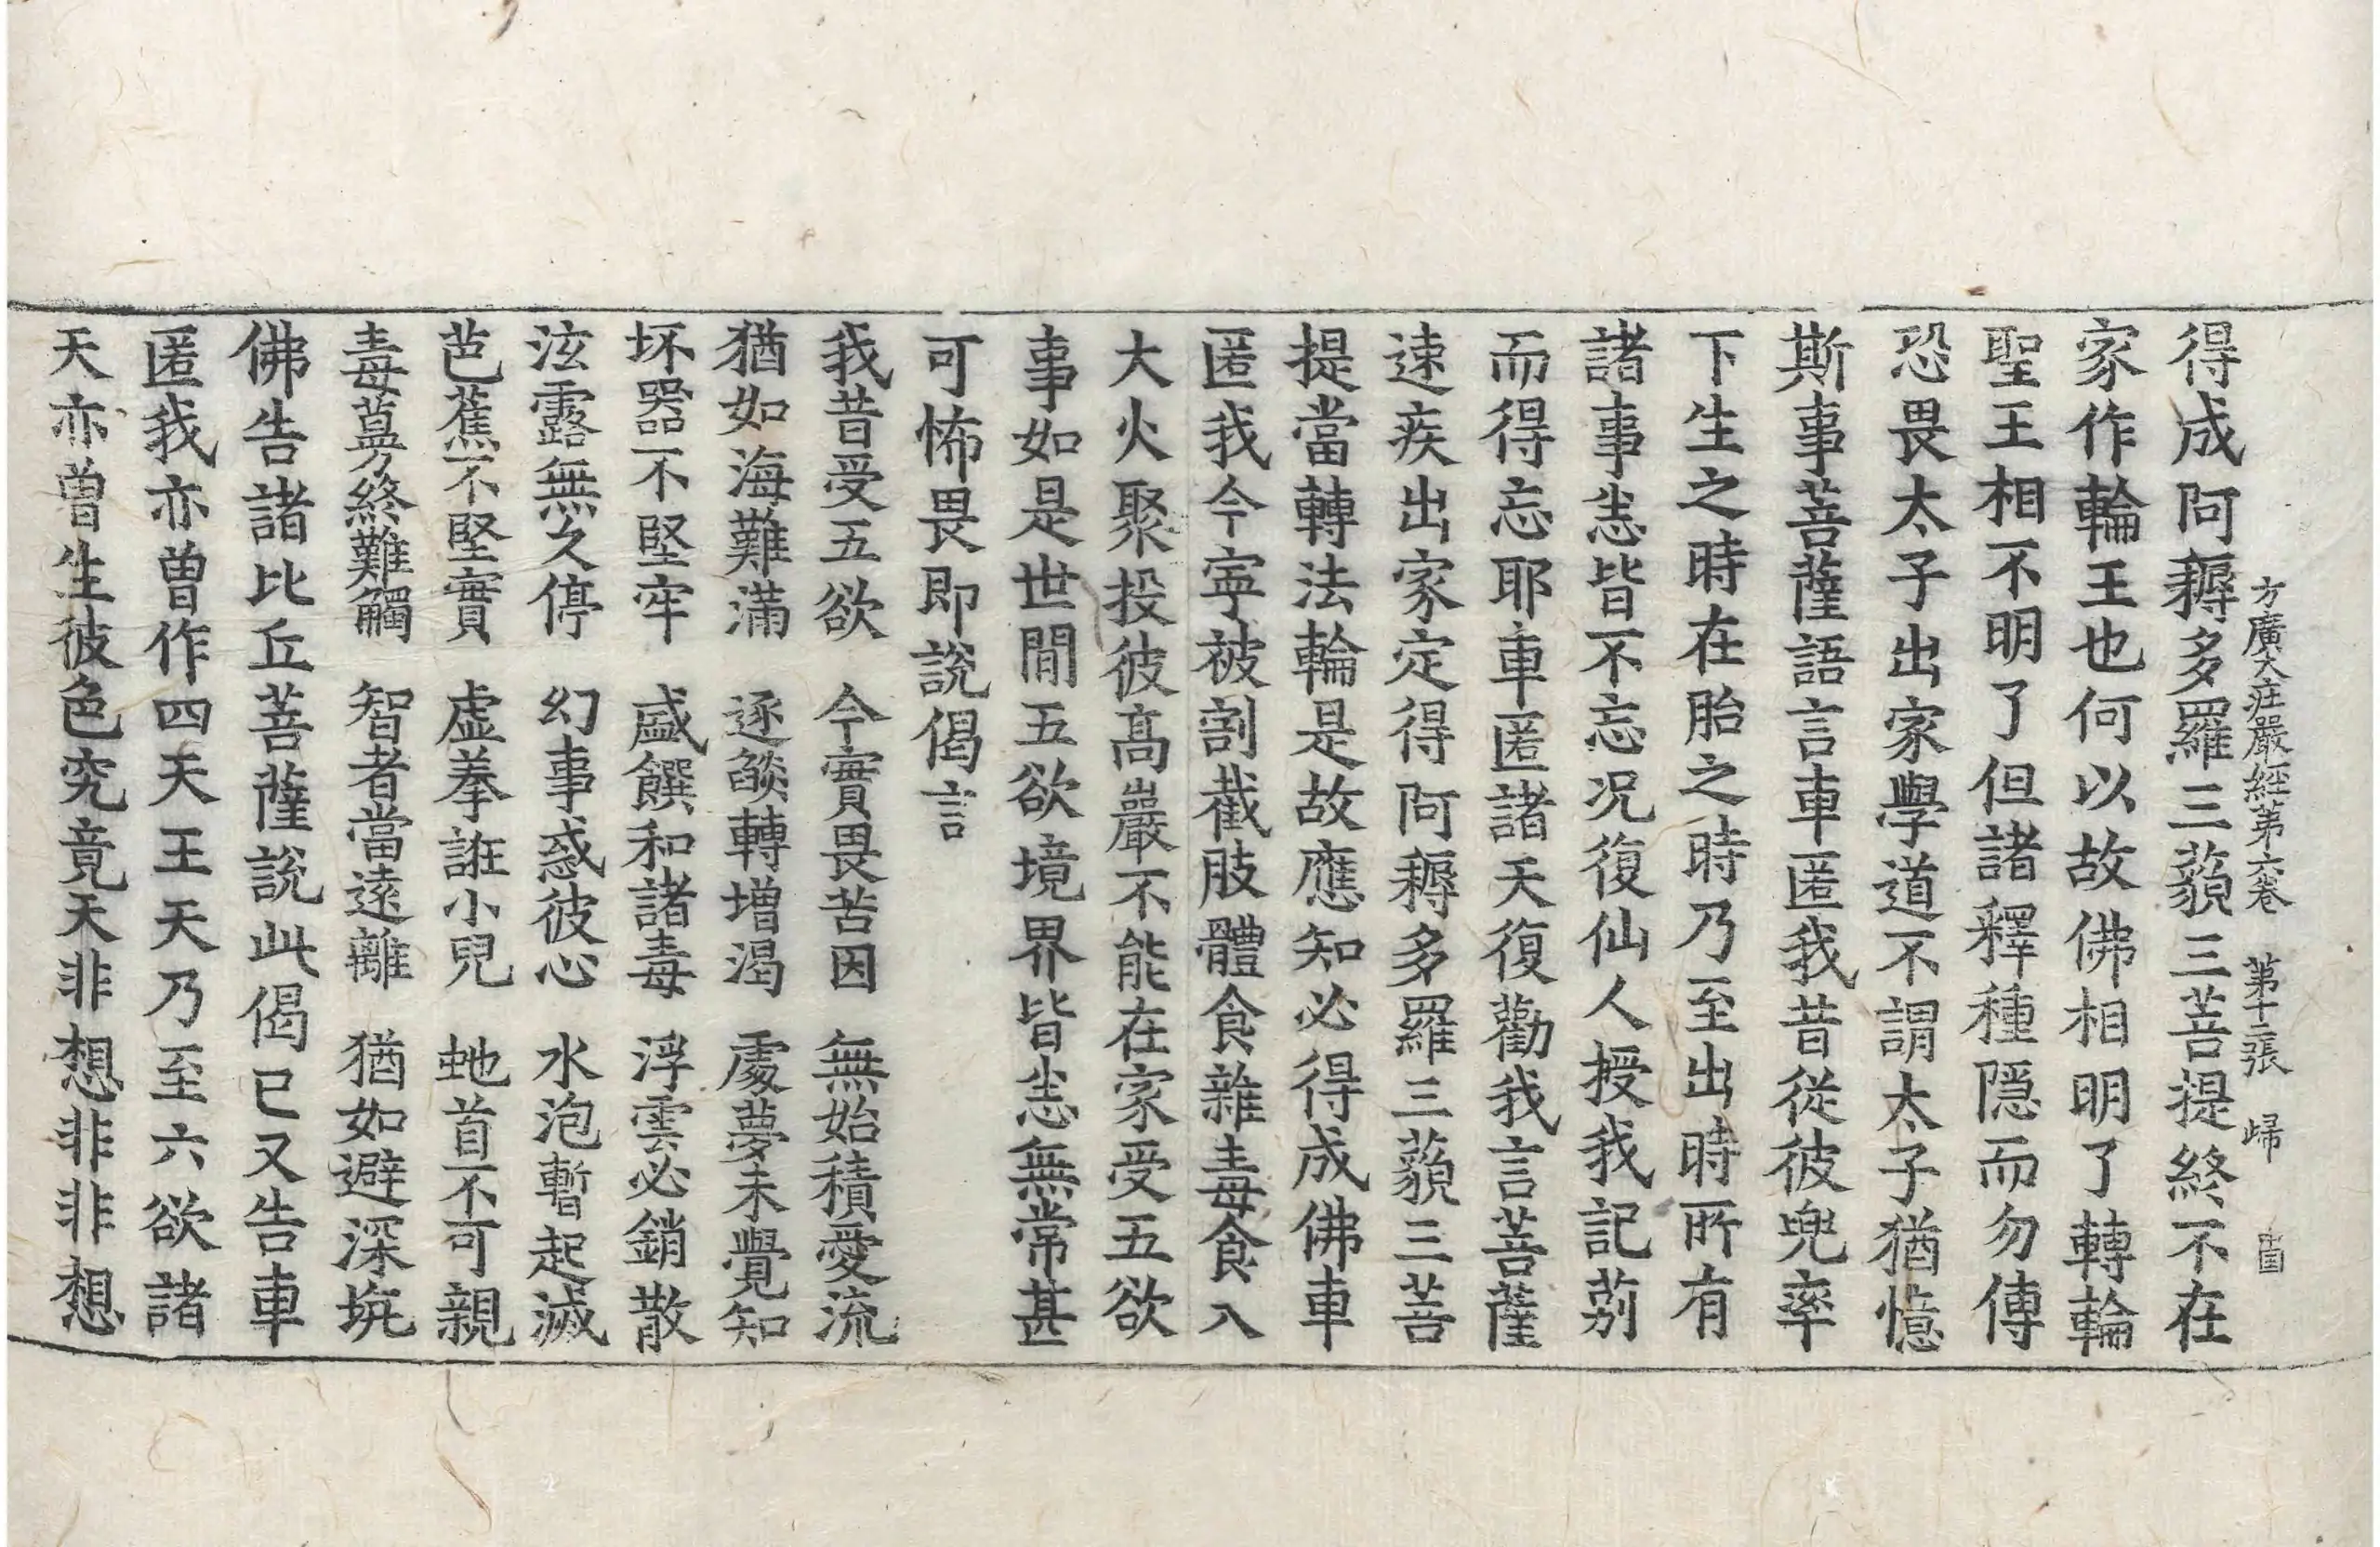 方廣大莊嚴經第六卷 第十二張 歸
得成阿耨多羅三藐三菩提終不在
家作輪王也何以故佛相明了轉輪
聖王相不明了但諸釋種隱而勿傳
恐畏太子出家學道不謂太子猶憶
斯事菩薩語言車匿我昔從彼兜率
下生之時在胎之時乃至出時所有
諸事悉皆不忘况復仙人授我記莂
而得忘耶車匿諸天復勸我言菩薩
速疾出家定得阿耨多羅三藐三菩
提當轉法輪是故應知必得成佛車
匿我今寧被割截肢體食雜毒食入
大火聚投彼髙巖不能在家受五欲
事如是世間五欲境界皆悉無常甚
可怖畏即說偈言
我昔受五欲 今實畏苦因 無始積愛流
猶如海難滿 逐燄轉增渴 處夢未覺知
坏器不堅牢 盛饌和諸毒 浮雲必銷散
泫露無久停 幻事惑彼心 水泡暫起滅
芭蕉不堅實 虛拳誑小兒 虵首不可親
毒蔂終難觸 智者當遠離 猶如避深坑
佛告諸比丘菩薩說此偈已又告車
匿我亦曾作四天王天乃至六欲諸
天亦曾生彼色究竟天非想非非想